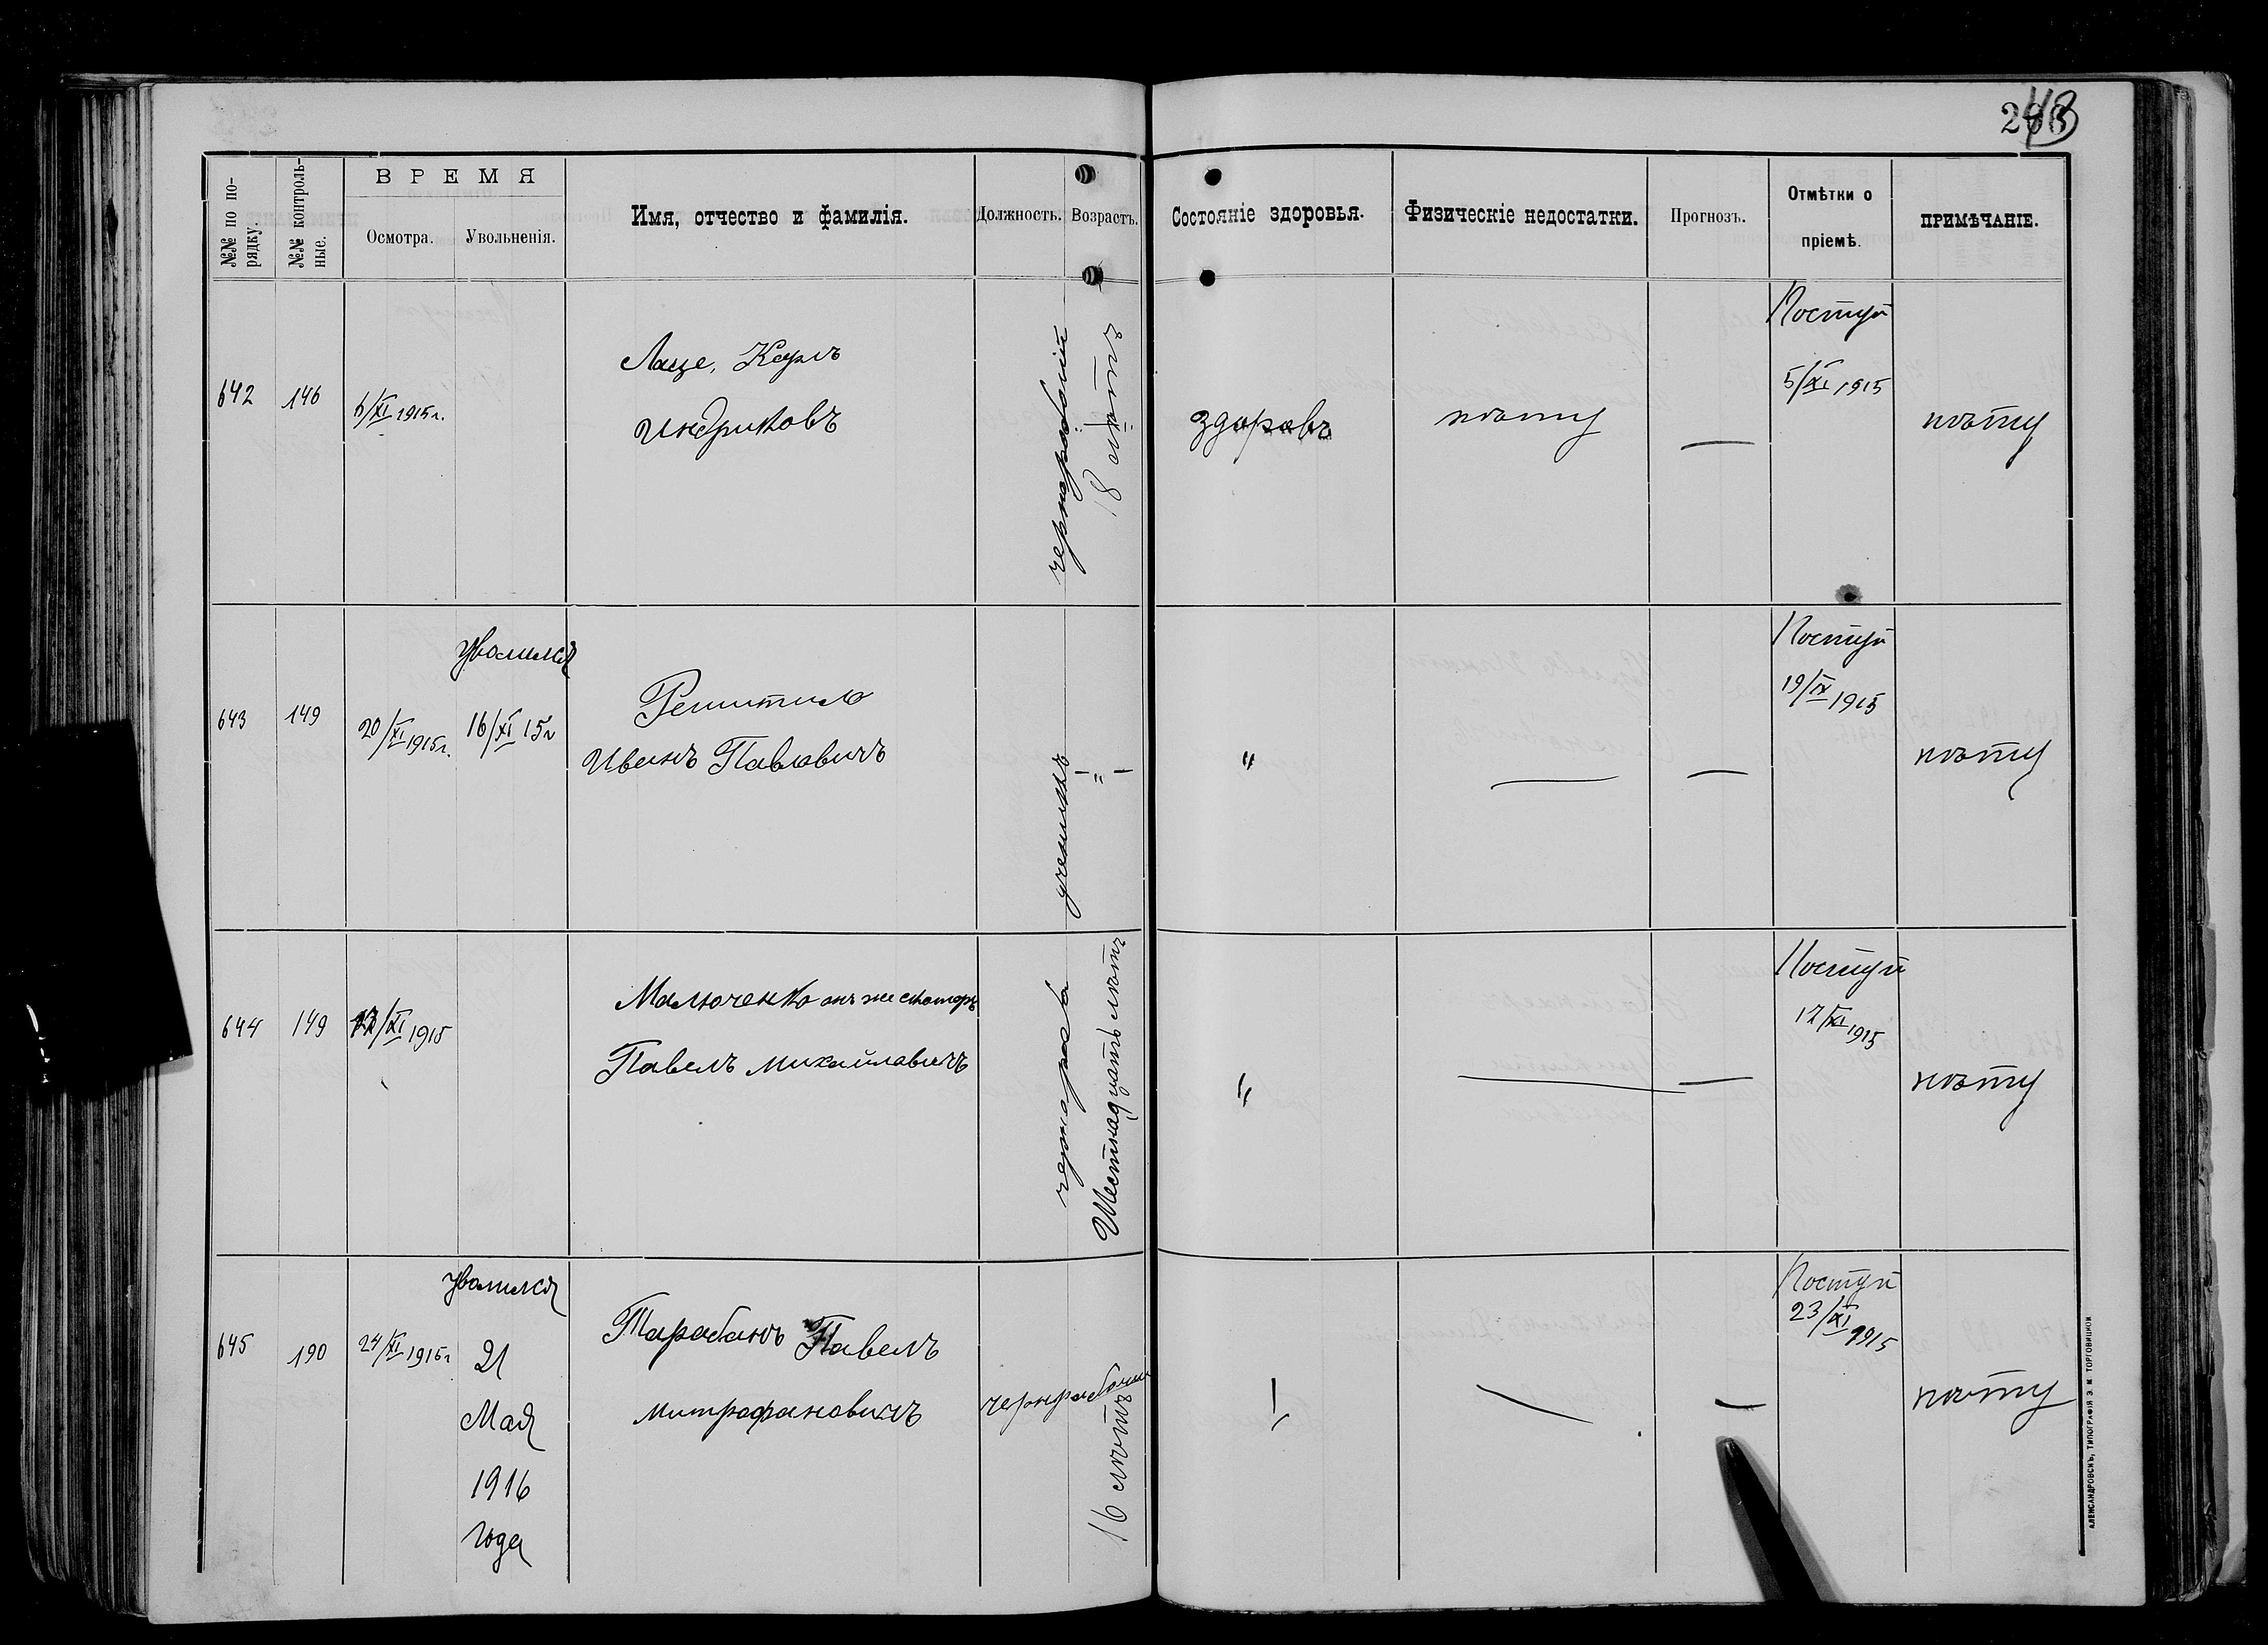 243
№№ по по-
рядку.
№№ контроль-
ные.
ВРЕМЯ
Осмотра.
Увольненія.
Имя, отчество и фамилія.
Должность.
Возрастъ.
Состояніе здоровья.
Физическіе недостатки.
Прогнозъ.
Отмѣтки о
пріемѣ.
ПРИМѢЧАНІЕ.
642
146
6/XI 1915г.
Лаце, Карлъ
Индриковъ
чернорабочій
18 лѣтъ
здоровъ
нѣту
—
Поступ
5/XI 1915
нѣту
643
149
20/XI 1915г.
уволился
16/XI 15г
Решитило
Иванъ Павловичъ
ученикъ
-"-
"
—
—
Поступ
19/IX 1915
нѣту
644
149
/XI 1915
Малюченко онъ же
Павелъ Михайловичъ
чернораб
Шестнадцать лѣтъ
"
—
—
Поступ
17/XI 1915
нѣту
645
190
24/XI 1915г
уволился
21
Мая
1916
года
Тарабанъ Павелъ
Митрофановичъ
чернорабочій
16 лѣтъ
—
—
Поступ
23/XI 1915
нѣту
АЛЕКСАНДРОВСКЪ, ТИПОГРАФІЯ Э. М. ТОРГОВИЦКОЙ